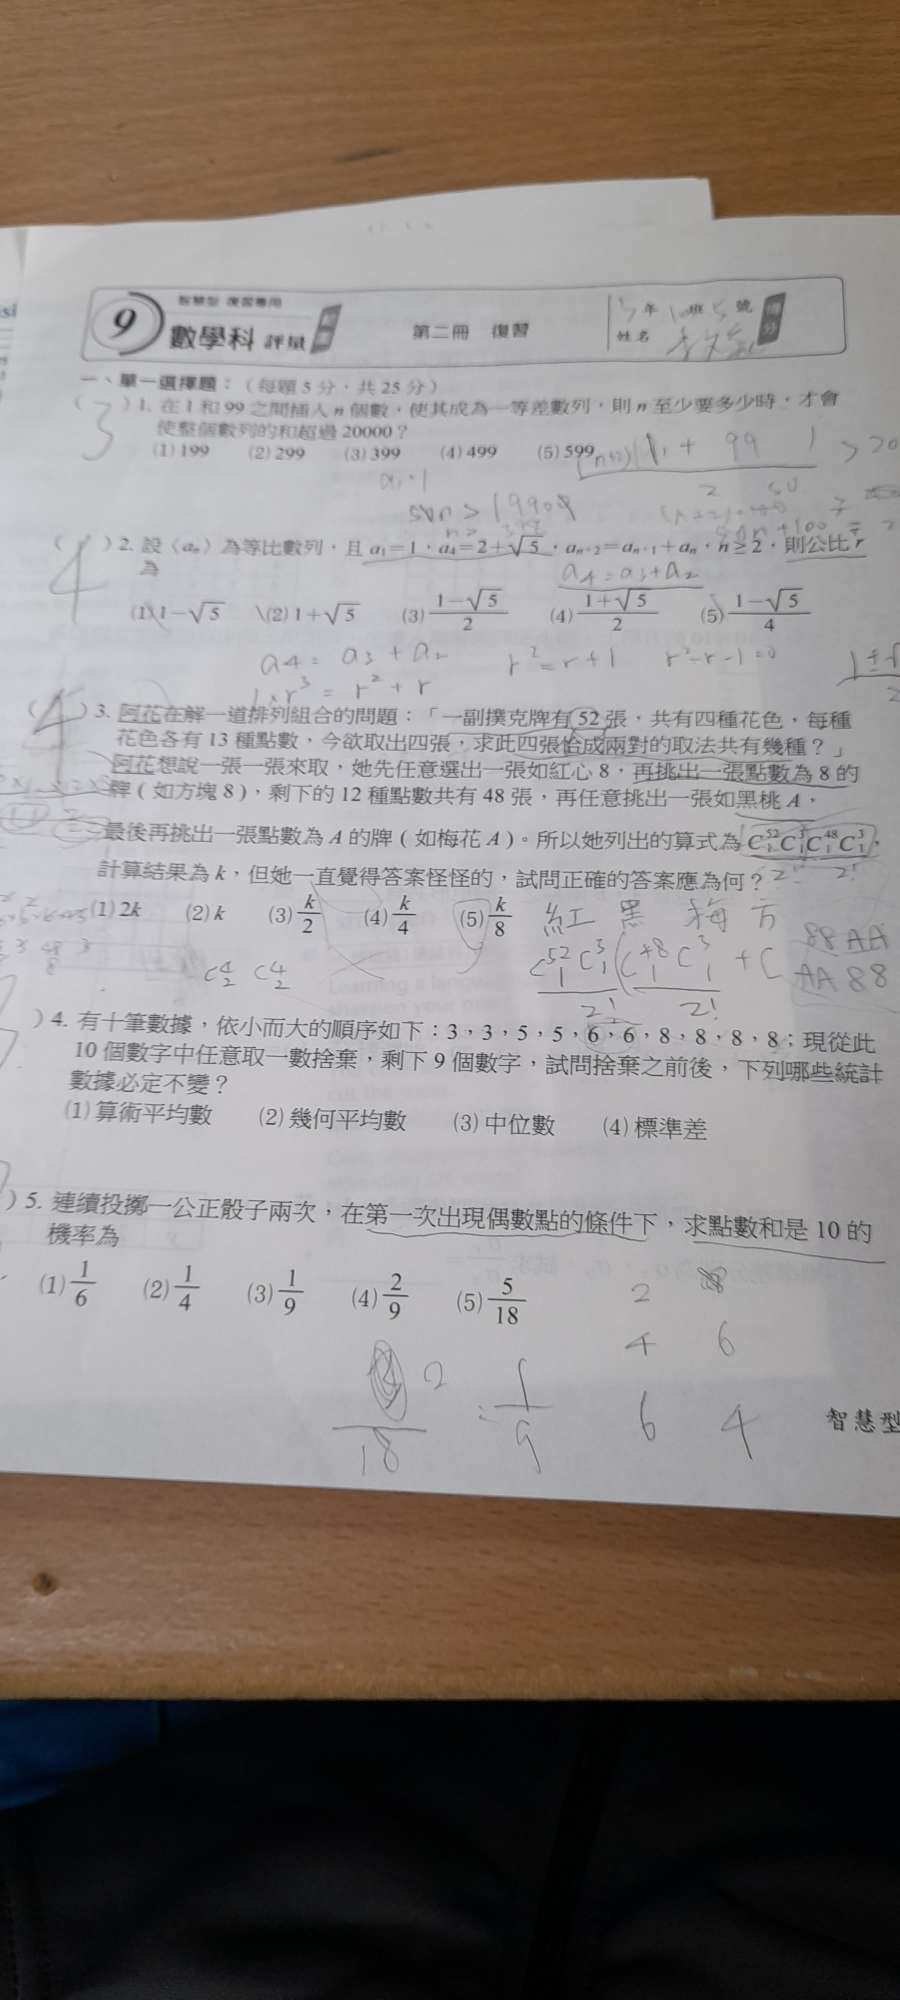 智慧型 復習專用
9 數學科 評量
第二冊 復習
年 班 5 號
姓名
得分
一、單一選擇題：（每題 5 分，共 25 分）
( 3 ) 1. 在 1 和 99 之間插入 n 個數，使其成為一等差數列，則 n 至少要多少時，才會
使整個數列的和超過 20000？
(1) 199 (2) 299 (3) 399 (4) 499 (5) 599
(n+2)(1+99) > 20
2
50n > 19904
( 4 ) 2. 設〈aₙ〉為等比數列，且 a₁=1，a₄=2+√5，aₙ₊₂=aₙ₊₁+aₙ，n≥2，則公比 r
為
a₄=a₃+a₂
(1) 1−√5 (2) 1+√5 (3) (1−√5)/2 (4) (1+√5)/2 (5) (1−√5)/4
a₄= a₃+a₂ r²=r+1 r²-r-1=0
1×r³ = r²+r
( 4 ) 3. 阿花在解一道排列組合的問題：「一副撲克牌有 52 張，共有四種花色，每種
花色各有 13 種點數，今欲取出四張，求此四張恰成兩對的取法共有幾種？」
阿花想說一張一張來取，她先任意選出一張如紅心 8，再挑出一張點數為 8 的
牌 ( 如方塊 8 )，剩下的 12 種點數共有 48 張，再任意挑出一張如黑桃 A，
最後再挑出一張點數為 A 的牌 ( 如梅花 A )。所以她列出的算式為 C₁⁵²C₁³C₁⁴⁸C₁³，
計算結果為 k，但她一直覺得答案怪怪的，試問正確的答案應為何？
2! 2!
(1) 2k (2) k (3) k/2 (4) k/4 (5) k/8
紅 黑 梅 方
88 AA
AA 88
C₂⁴ C₂⁴
C₁⁵² C₁³ (C₁⁴⁸ C₁³ + C
2! 2!
) 4. 有十筆數據，依小而大的順序如下：3，3，5，5，6，6，8，8，8，8；現從此
10 個數字中任意取一數捨棄，剩下 9 個數字，試問捨棄之前後，下列哪些統計
數據必定不變？
(1) 算術平均數 (2) 幾何平均數 (3) 中位數 (4) 標準差
) 5. 連續投擲一公正骰子兩次，在第一次出現偶數點的條件下，求點數和是 10 的
機率為
(1) 1/6 (2) 1/4 (3) 1/9 (4) 2/9 (5) 5/18
2
4 6
6 4
2/18 = 1/9
智慧型